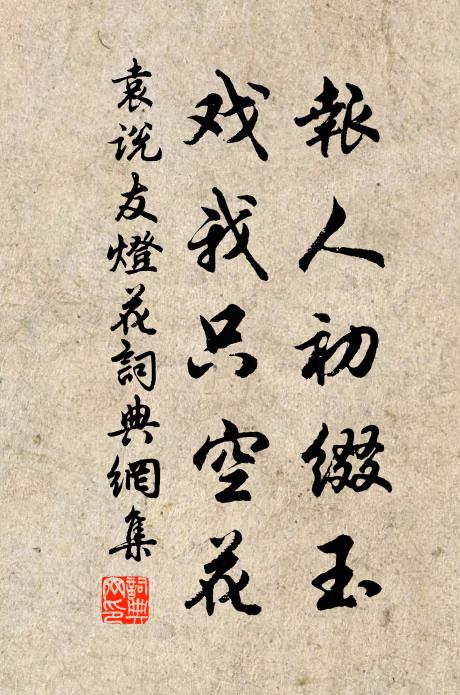 報人初綴玉
戏我只空花
袁说友燈花詞典網集
詞典網印